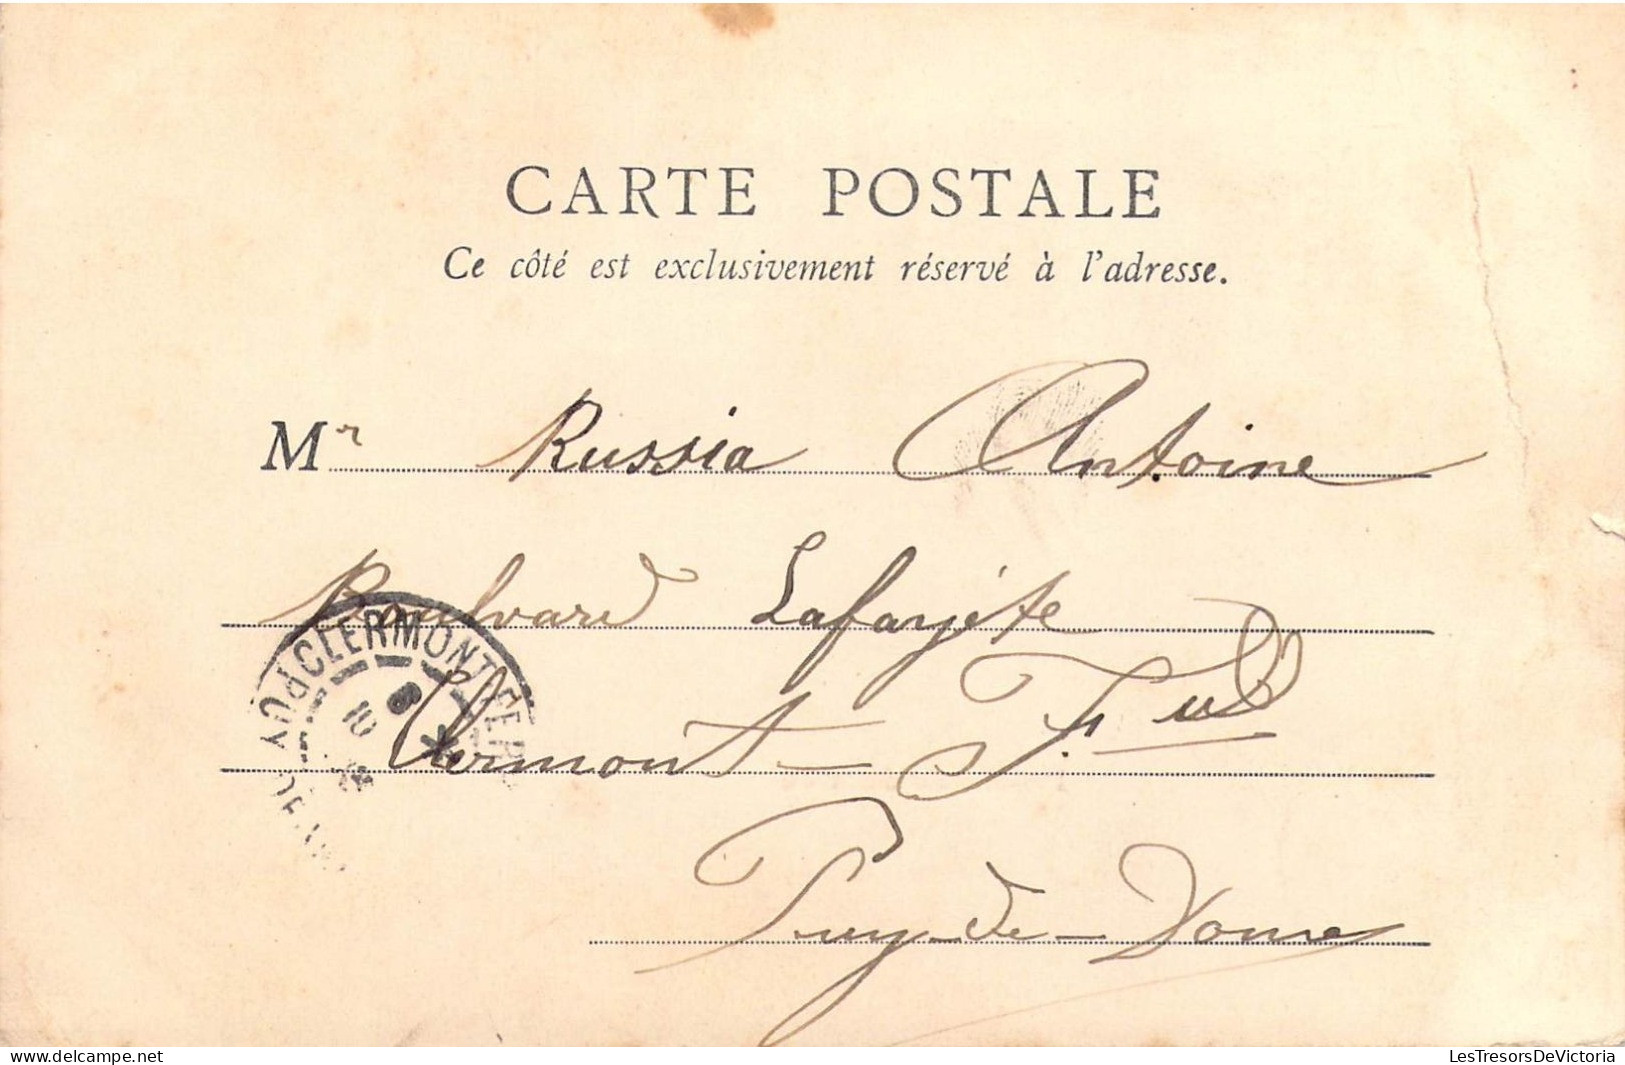 CARTE POSTALE
Ce côté est exclusivement réservé à l'adresse.
Mr Russia Antoine
Boulvard Lafayéte
Clermont - F.
Puy-de-Dome
CLERMONT-FER
PUY DE
8
10
www.delcampe.net
LesTresorsDeVictoria